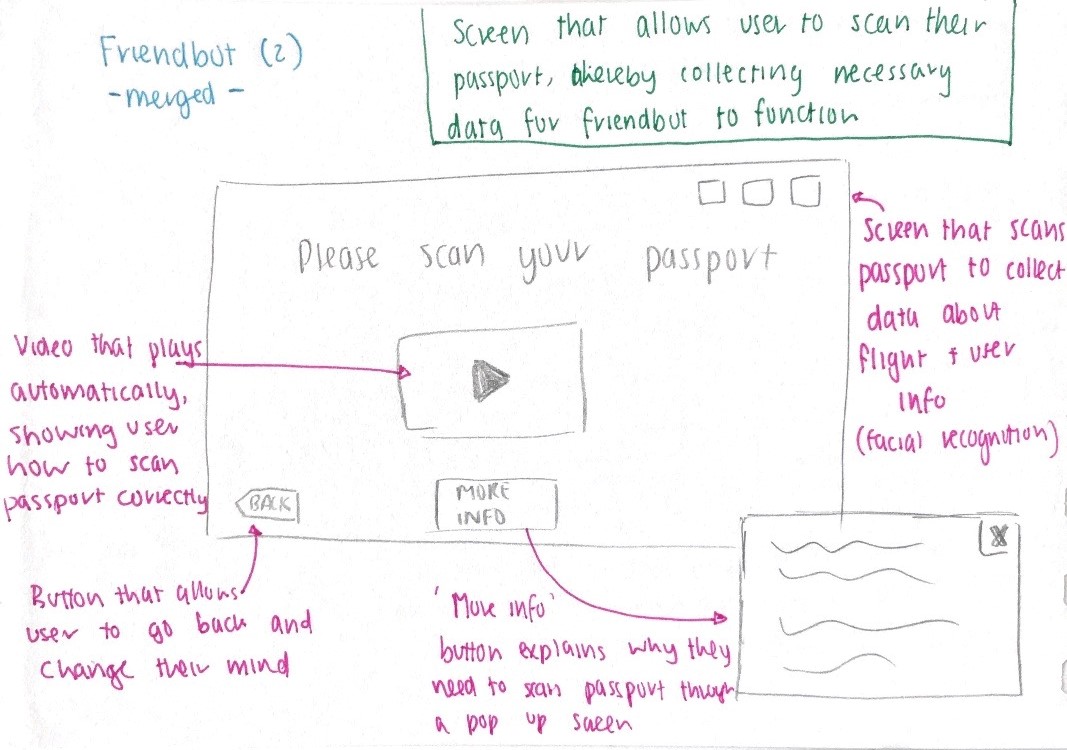 Friendbot (2)
- merged -
Screen that allows user to scan their
passport, thereby collecting necessary
data for friendbot to function
Please scan your passport
Screen that scans
passport to collect
data about
flight + user
info
(facial recognition)
Video that plays
automatically,
showing user
how to scan
passport correctly
BACK
MORE
INFO
X
Button that allows
user to go back and
change their mind
'More info'
button explains why they
need to scan passport through
a pop up screen